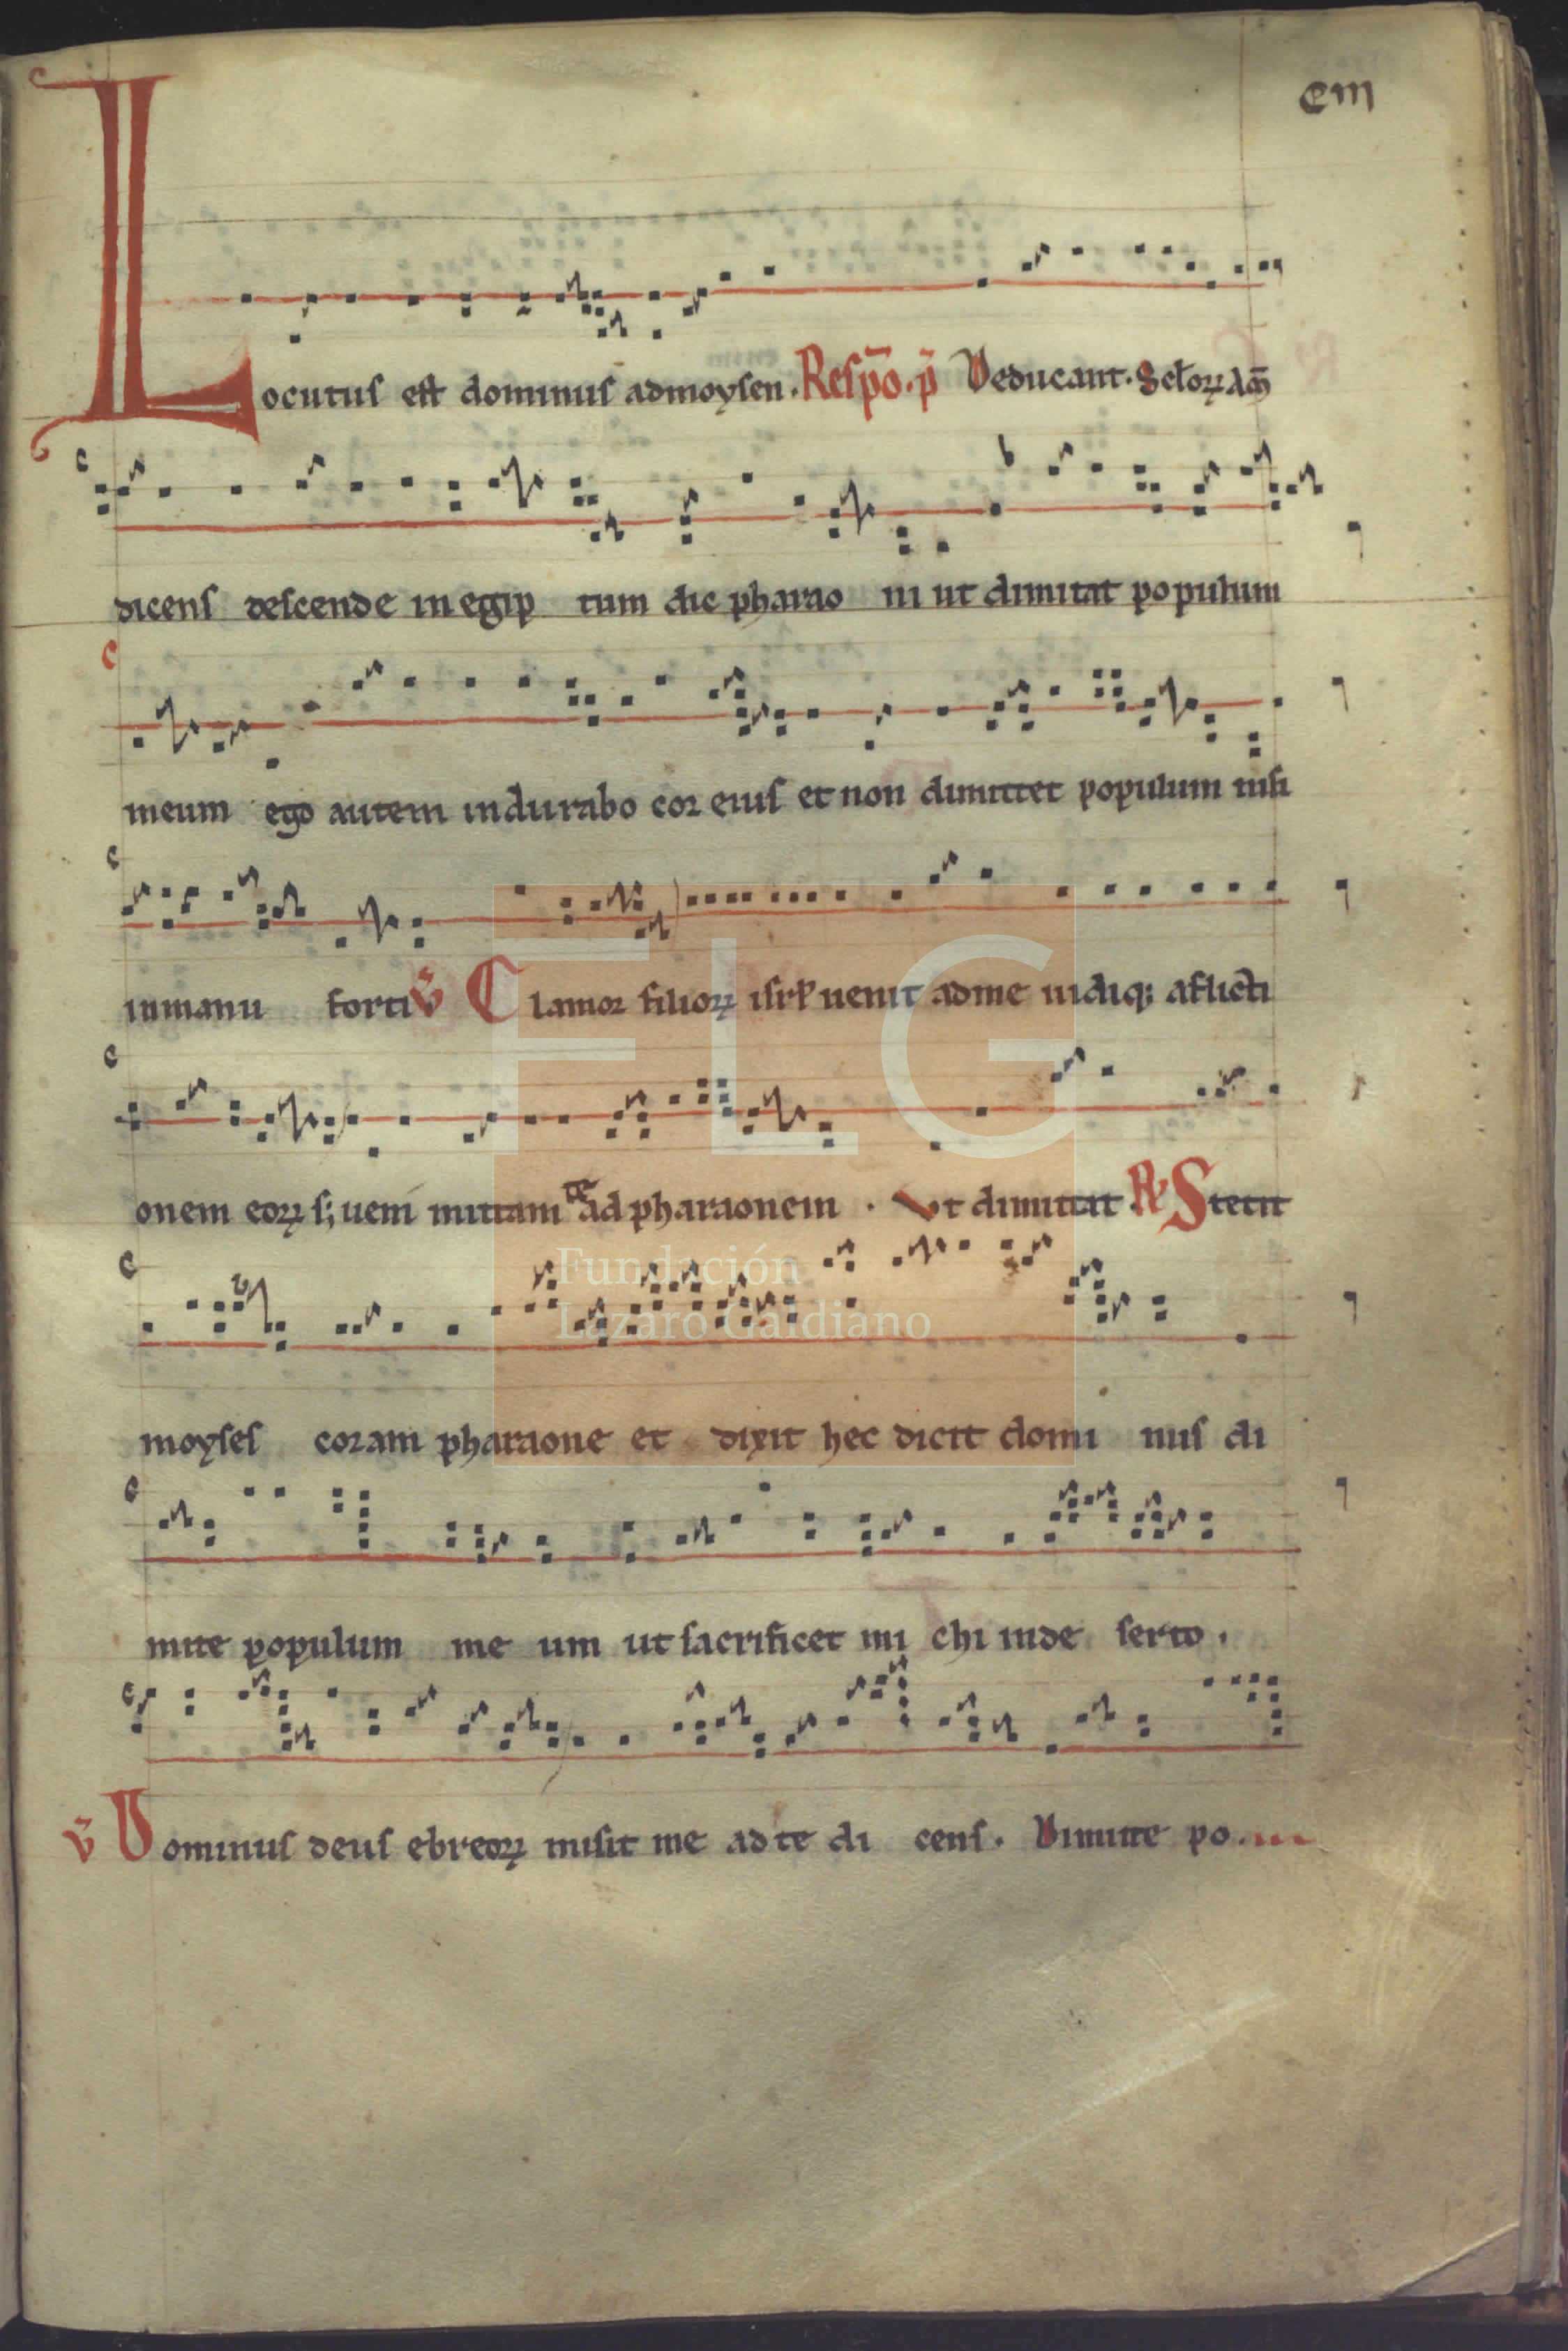 cm
Locutus est dominus admoysen. Respo. p Deducant. Sclorꝝ Am
dicens descende in egip tum dic pharao ni ut dimitat populum
meum ego autem indurabo cor eius et non dimittet populum nisi
inmanu forti V Clamor filiorꝝ isrl uenit adme uidiq; aflicti
onem eorꝝ s; ueni mittam te ad pharaonem. Ut dimittat. R Stetit
moyses coram pharaone et dixit hec dicit domi nus di
mitte populum me um ut sacrificet mi chi inde serto.
V Dominus deus ebreorꝝ misit me ad te di cens. Dimitte po.
FLG
Fundación
Lázaro Galdiano